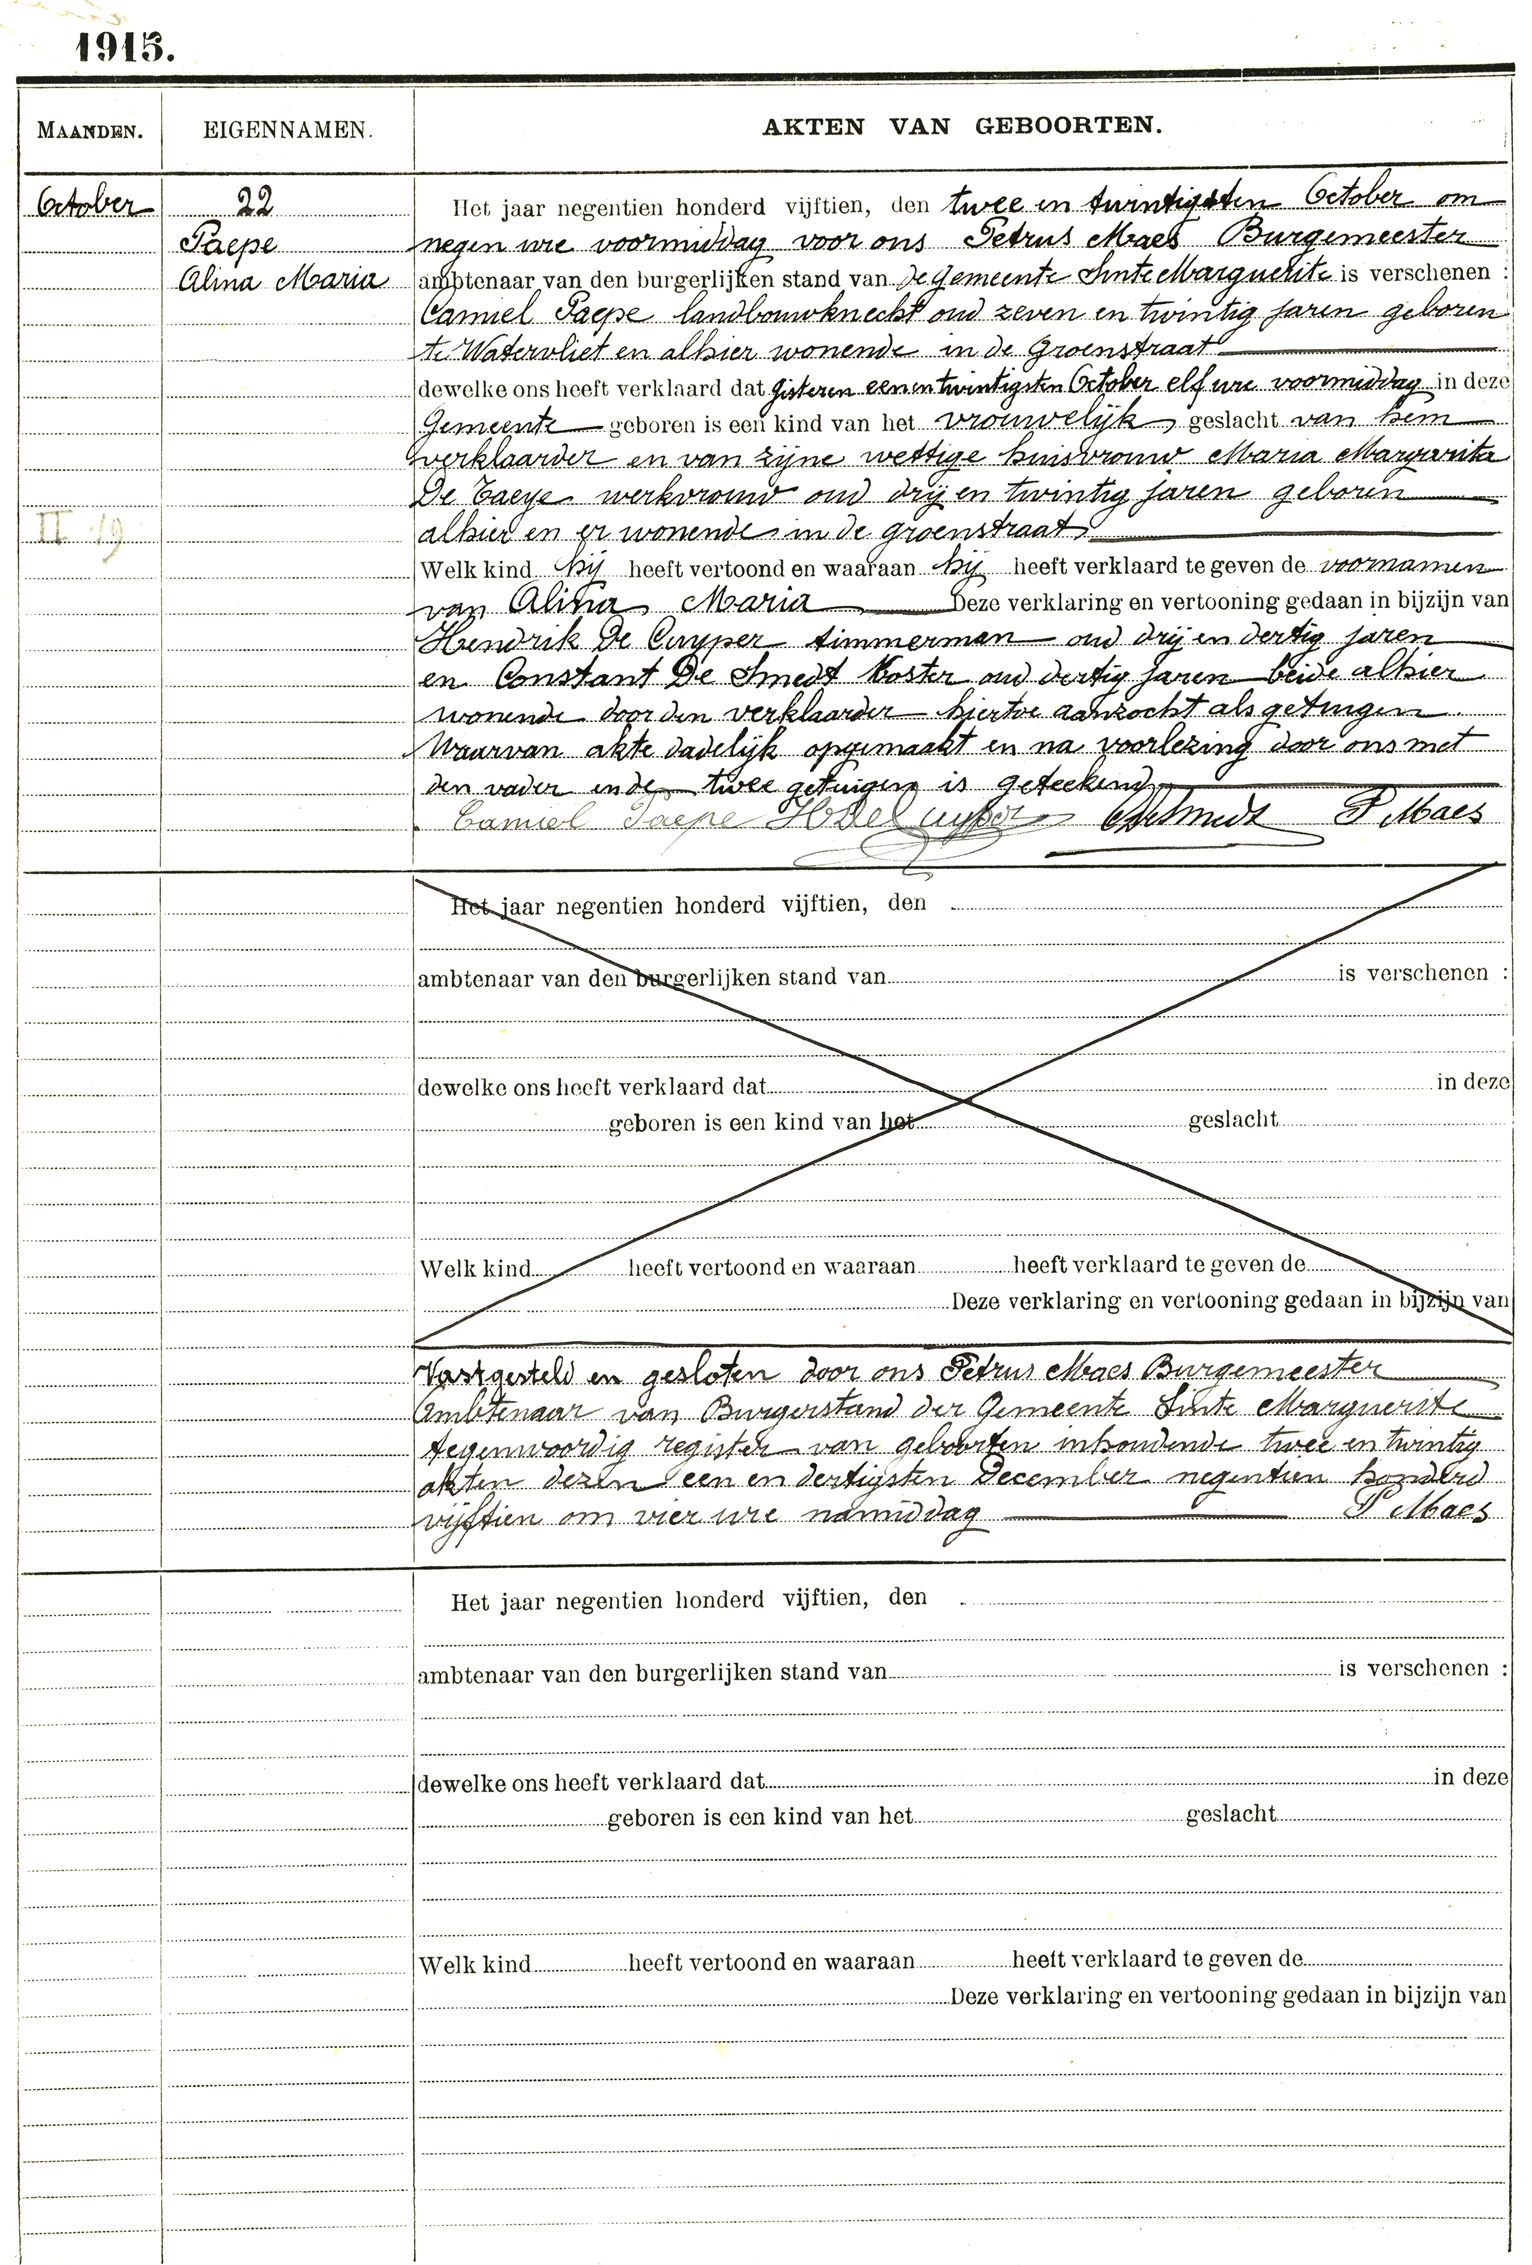 1915.
MAANDEN. EIGENNAMEN. AKTEN VAN GEBOORTEN.
October 22 Het jaar negentien honderd vijftien, den twee en twintigsten October om
Paepe negen ure voormiddag voor ons Petrus Maes Burgemeester
Alina Maria ambtenaar van den burgerlijken stand van de Gemeente Sinte Marguerite is verschenen :
Camiel Paepe landbouwknecht oud zeven en twintig jaren geboren
te Watervliet en alhier wonende in de Groenstraat
dewelke ons heeft verklaard dat gisteren eenen twintigsten October elf ure voormiddag in deze
Gemeente geboren is een kind van het vrouwelijk geslacht van hem
verklaarder en van zijne wettige huisvrouw Maria Margarita
De Taeye werkvrouw oud drij en twintig jaren geboren
II 19 alhier en er wonende in de groenstraat
Welk kind hij heeft vertoond en waaraan hij heeft verklaard te geven de voornamen
van Alina Maria Deze verklaring en vertooning gedaan in bijzijn van
Hendrik De Cuyper timmerman oud drij en dertig jaren
en Constant De Smedt Koster oud dertig jaren beide alhier
wonende door den verklaarder hiertoe aanzocht als getuigen.
Waarvan akte dadelijk opgemaakt en na voorlezing door ons met
den vader en de twee getuigen is geteekend
Camiel Paepe H De Cuyper C De Smedt P Maes
Het jaar negentien honderd vijftien, den
ambtenaar van den burgerlijken stand van is verschenen :
dewelke ons heeft verklaard dat in deze
geboren is een kind van het geslacht
Welk kind heeft vertoond en waaraan heeft verklaard te geven de
Deze verklaring en vertooning gedaan in bijzijn van
Vastgesteld en gesloten door ons Petrus Maes Burgemeester
Ambtenaar van Burgerstand der Gemeente Sinte Marguerite
tegenwoordig register van geboorten inhoudende twee en twintig
akten dezen een en dertigsten December negentien honderd
vijftien om vier ure namiddag P Maes
Het jaar negentien honderd vijftien, den
ambtenaar van den burgerlijken stand van is verschenen :
dewelke ons heeft verklaard dat in deze
geboren is een kind van het geslacht
Welk kind heeft vertoond en waaraan heeft verklaard te geven de
Deze verklaring en vertooning gedaan in bijzijn van